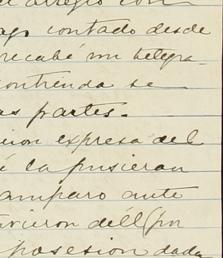 el arreglo con
ago contado desde
recabé un telegra-
contienda se
as partes.-
cion expresa del
é la pusieran
amparo ante
uvieron dell (por
posesion dada